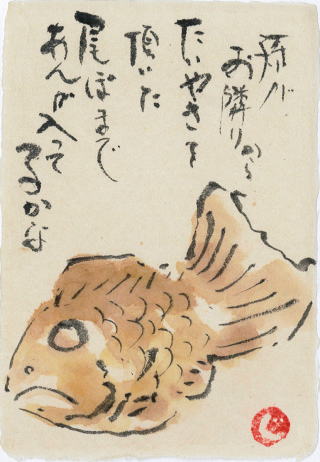 お隣りから
たいやきを
頂いた
尾っぽまで
あんが入って
るかな